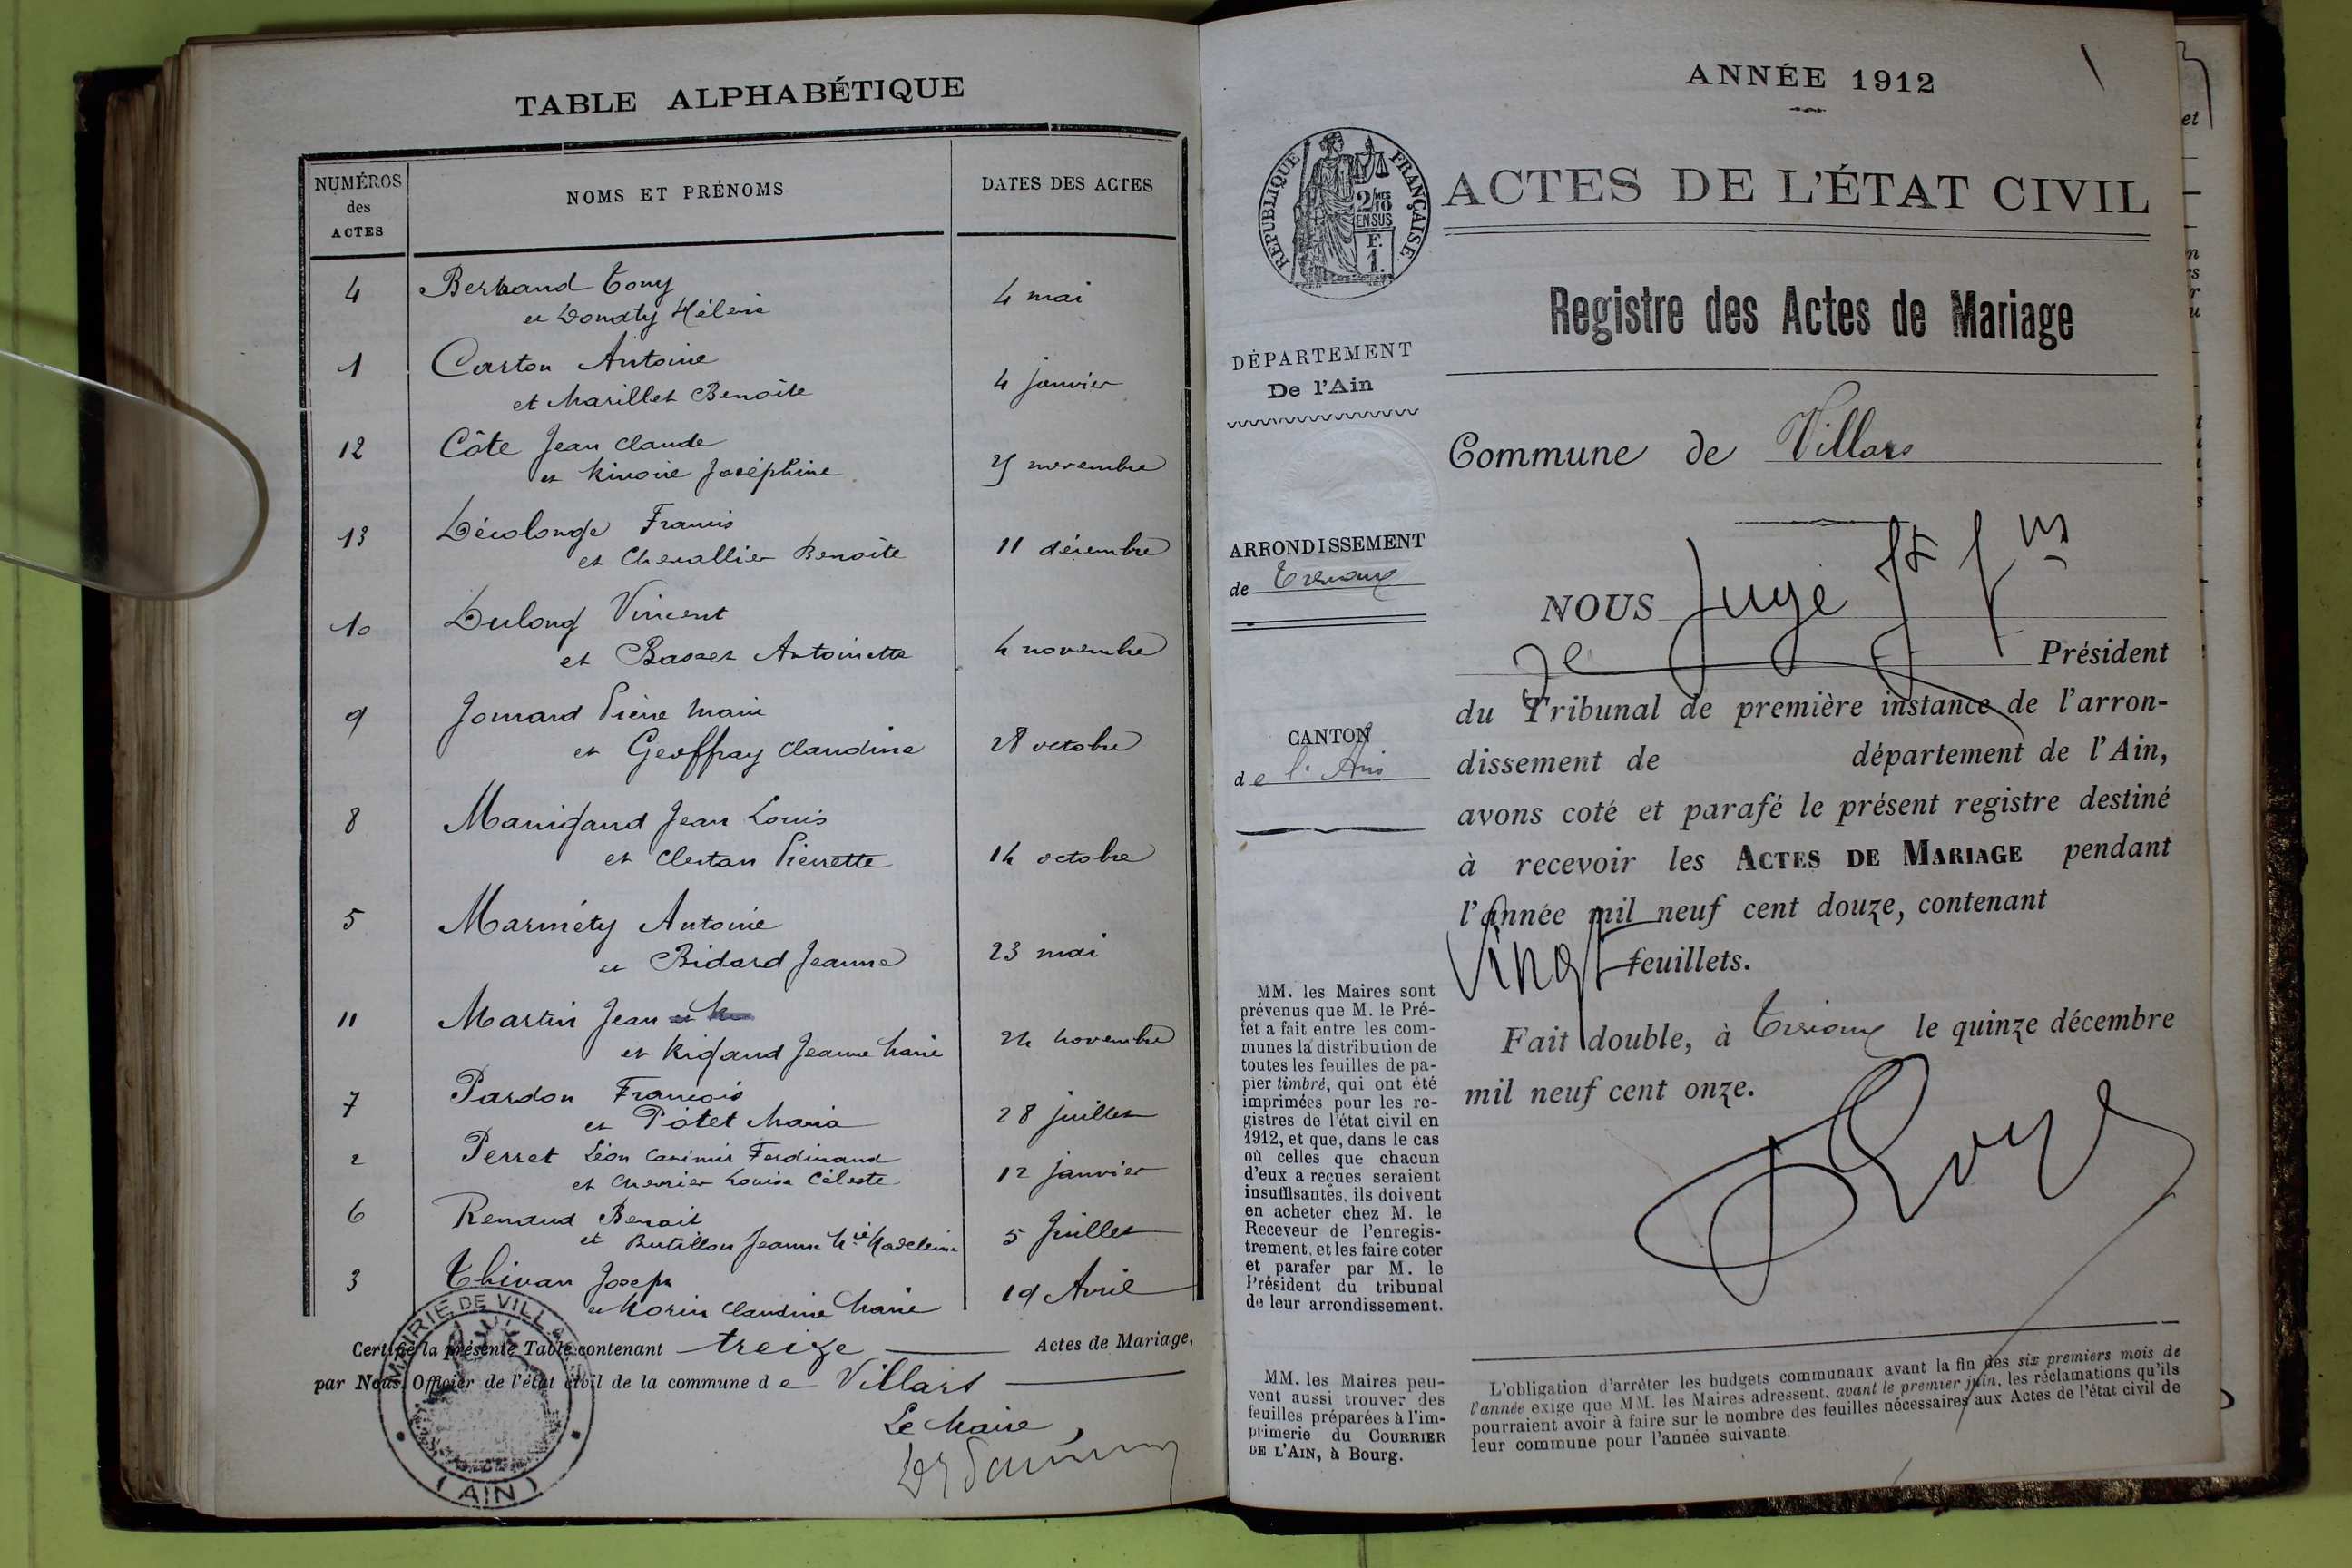 TABLE ALPHABÉTIQUE
NUMÉROS
des
ACTES
NOMS ET PRÉNOMS
DATES DES ACTES
4 Bertrand Tony
et Donaty Hélène 4 mai
1 Carton Antoine
et Marillet Benoîte 4 janvier
12 Côte Jean Claude
et Rivoire Joséphine novembre
13 Décolonge Francis
et Chevallier Benoîte 11 décembre
10 Dulong Vincent
et Basset Antoinette 4 novembre
9 Jomard Pierre Marie
et Geoffray Claudine 28 octobre
8 Manigand Jean Louis
et Clertan Pierrette 14 octobre
5 Marméty Antoine
et Bidard Jeanne 23 mai
11 Martin Jean
et Rigaud Jeanne Marie 24 novembre
7 Pardon François
et Potet Maria 28 juillet
2 Perret Léon Casimir Ferdinand
et Chevrier Louise Céleste 12 janvier
6 Renaud Benoit
et Butillon Jeanne Mie Madeleine 5 Juillet
3 Thivan Joseph
et Morin Claudine Marie 19 Avril
Certifié la présente Table contenant treize Actes de Mariage,
par Nous, Officier de l'état civil de la commune de Villars
Le Maire,
MAIRIE DE VILLARS
(AIN)
ANNÉE 1912
RÉPUBLIQUE FRANÇAISE
2/10 MES
EN SUS
F.
1.
ACTES DE L'ÉTAT CIVIL
Registre des Actes de Mariage
DÉPARTEMENT
De l'Ain
Commune de Villars
ARRONDISSEMENT
de Trévoux
CANTON
de l'Ain
NOUS Juge
Président
du Tribunal de première instance de l'arron-
dissement de département de l'Ain,
avons coté et parafé le présent registre destiné
à recevoir les ACTES DE MARIAGE pendant
l'année mil neuf cent douze, contenant
Vingt feuillets.
Fait double, à Trévoux le quinze décembre
mil neuf cent onze.
MM. les Maires sont
prévenus que M. le Pré-
fet a fait entre les com-
munes la distribution de
toutes les feuilles de pa-
pier timbré, qui ont été
imprimées pour les re-
gistres de l'état civil en
1912, et que, dans le cas
où celles que chacun
d'eux a reçues seraient
insuffisantes, ils doivent
en acheter chez M. le
Receveur de l'enregis-
trement, et les faire coter
et parafer par M. le
Président du tribunal
de leur arrondissement.
MM. les Maires peu-
vent aussi trouver des
feuilles préparées à l'im-
primerie du COURRIER
DE L'AIN, à Bourg.
L'obligation d'arrêter les budgets communaux avant la fin des six premiers mois de
l'année exige que MM. les Maires adressent, avant le premier juin, les réclamations qu'ils
pourraient avoir à faire sur le nombre des feuilles nécessaires aux Actes de l'état civil de
leur commune pour l'année suivante.